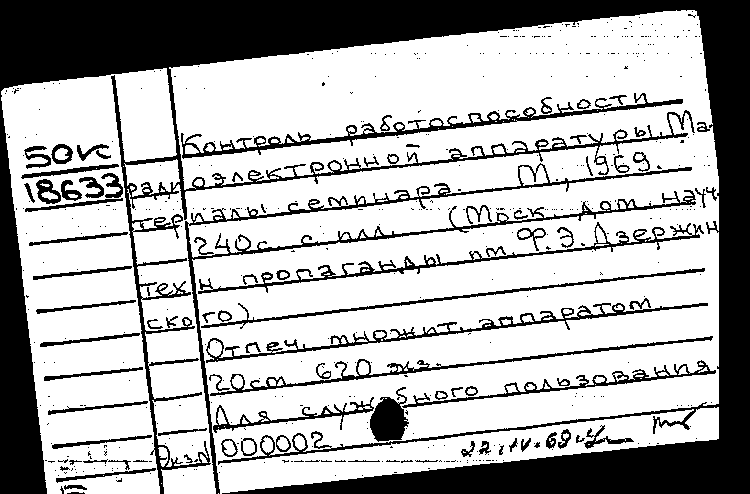 Контроль работоспособности
50к
18633 радиоэлектронной аппаратуры. Ма-
териалы семинара. М., 1969.
240с. с илл. (Моск. дом науч-
техн пропаганды им. Ф.Э.Дзержин
ского).
Отпеч. множит. аппаратом.
20см 620 экз.
Для служебного пользования.
Экз.N 000002.